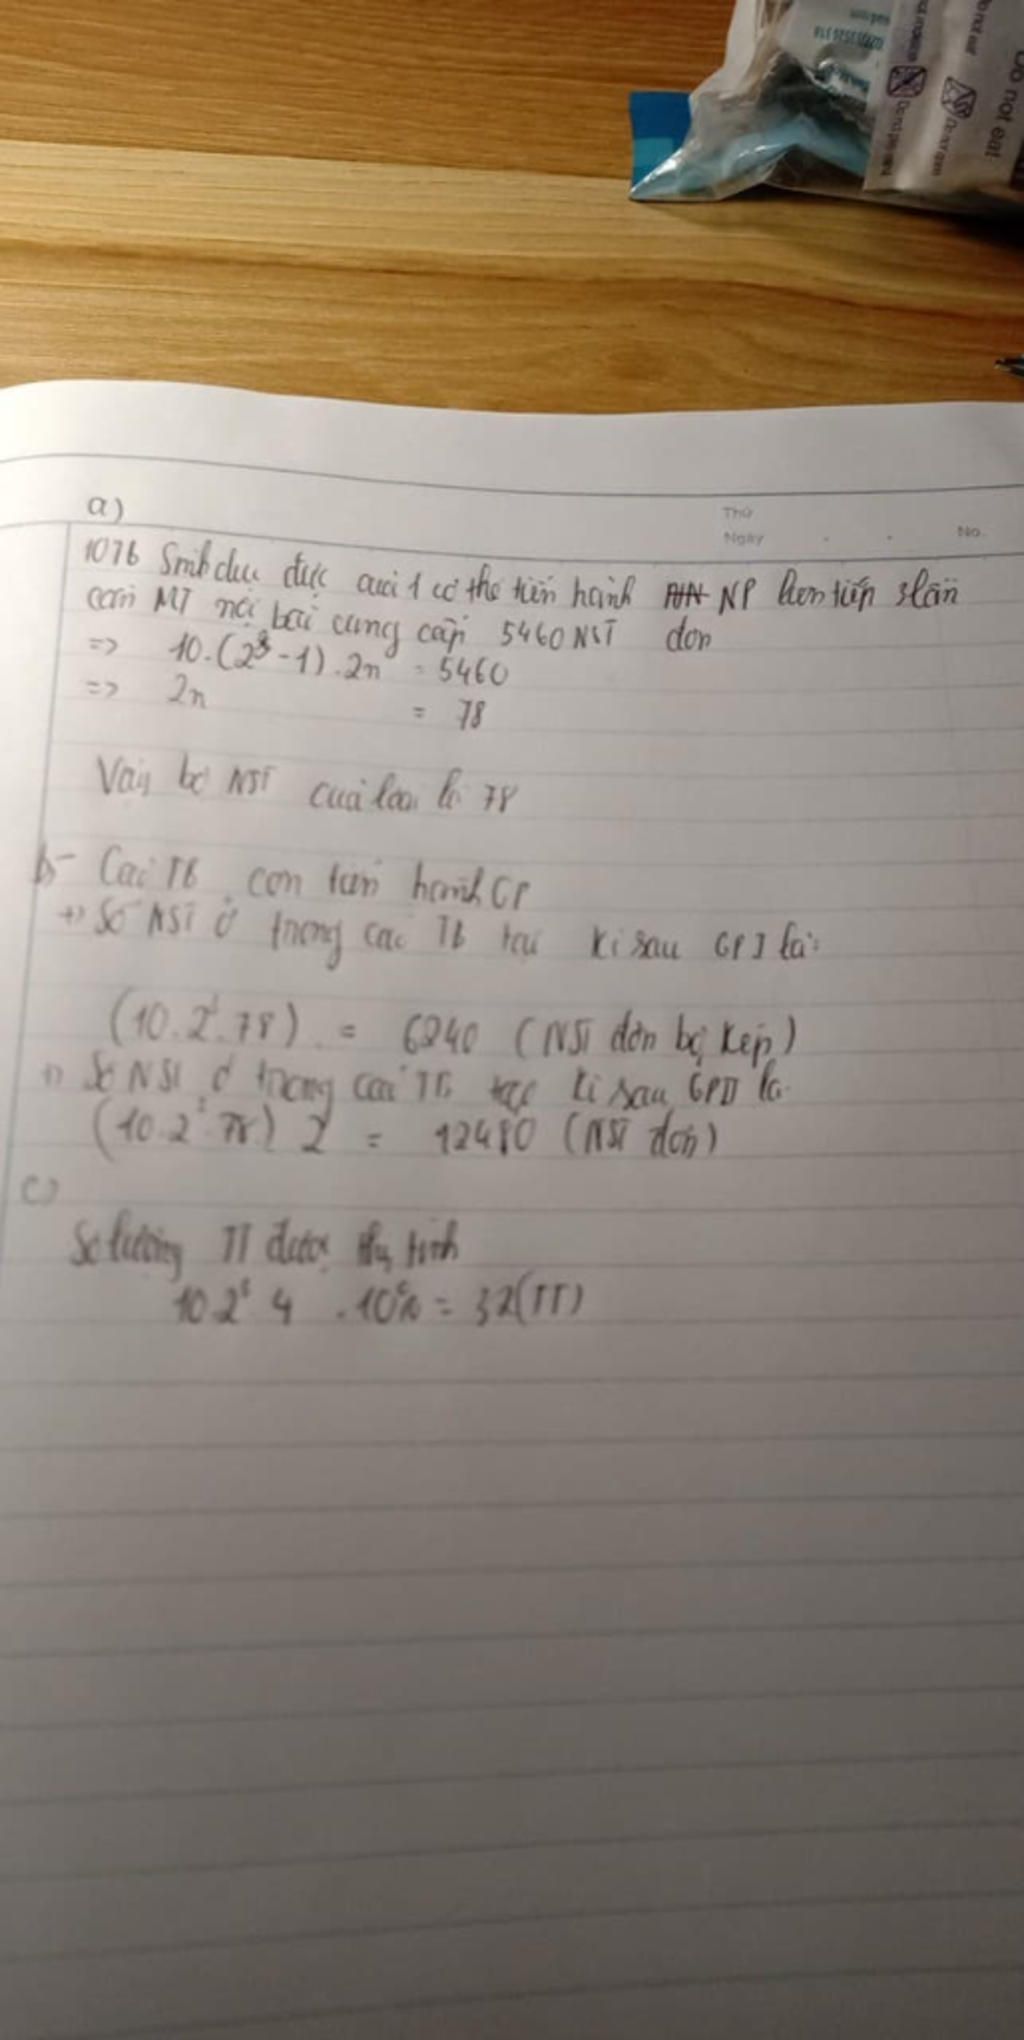 Do not eat
Do not eat
a)
Thứ
Ngày
No.
10Tb Sinh dục đực của 1 cơ thể tiến hành NP liên tiếp 3 lần
cần MT nội bào cung cấp 5460 NST đơn
=> 10.(2³-1).2n = 5460
=> 2n = 78
Vậy bộ NST của loài là 78
b- Các Tb con tiến hành GP
+) Số NST ở trong các Tb tại kì sau GPI là:
(10.2³.78) = 6240 (NST đơn bị kép)
+) Số NST ở trong các Tb tại kì sau GPII là
(10.2³.78) 2 = 12480 (NST đơn)
c)
Số lượng TT được thụ tinh
10.2³.4 .10% = 32(TT)